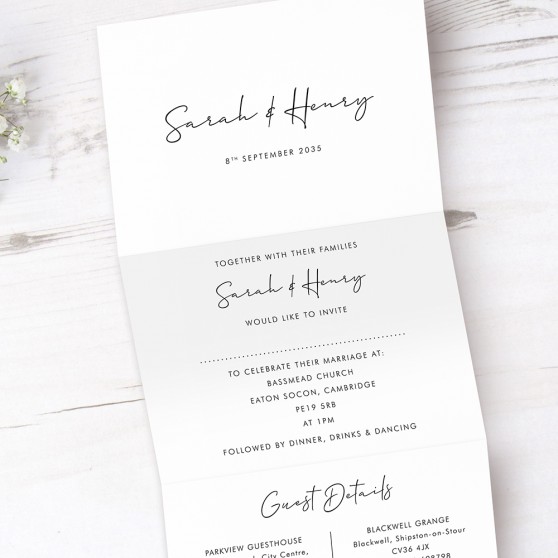 Sarah & Henry
8TH SEPTEMBER 2035
TOGETHER WITH THEIR FAMILIES
Sarah & Henry
WOULD LIKE TO INVITE
TO CELEBRATE THEIR MARRIAGE AT:
BASSMEAD CHURCH
EATON SOCON, CAMBRIDGE
PE19 5RB
AT 1PM
FOLLOWED BY DINNER, DRINKS & DANCING
Guest Details
PARKVIEW GUESTHOUSE
City Centre,
BLACKWELL GRANGE
Blackwell, Shipston-on-Stour
CV36 4JX